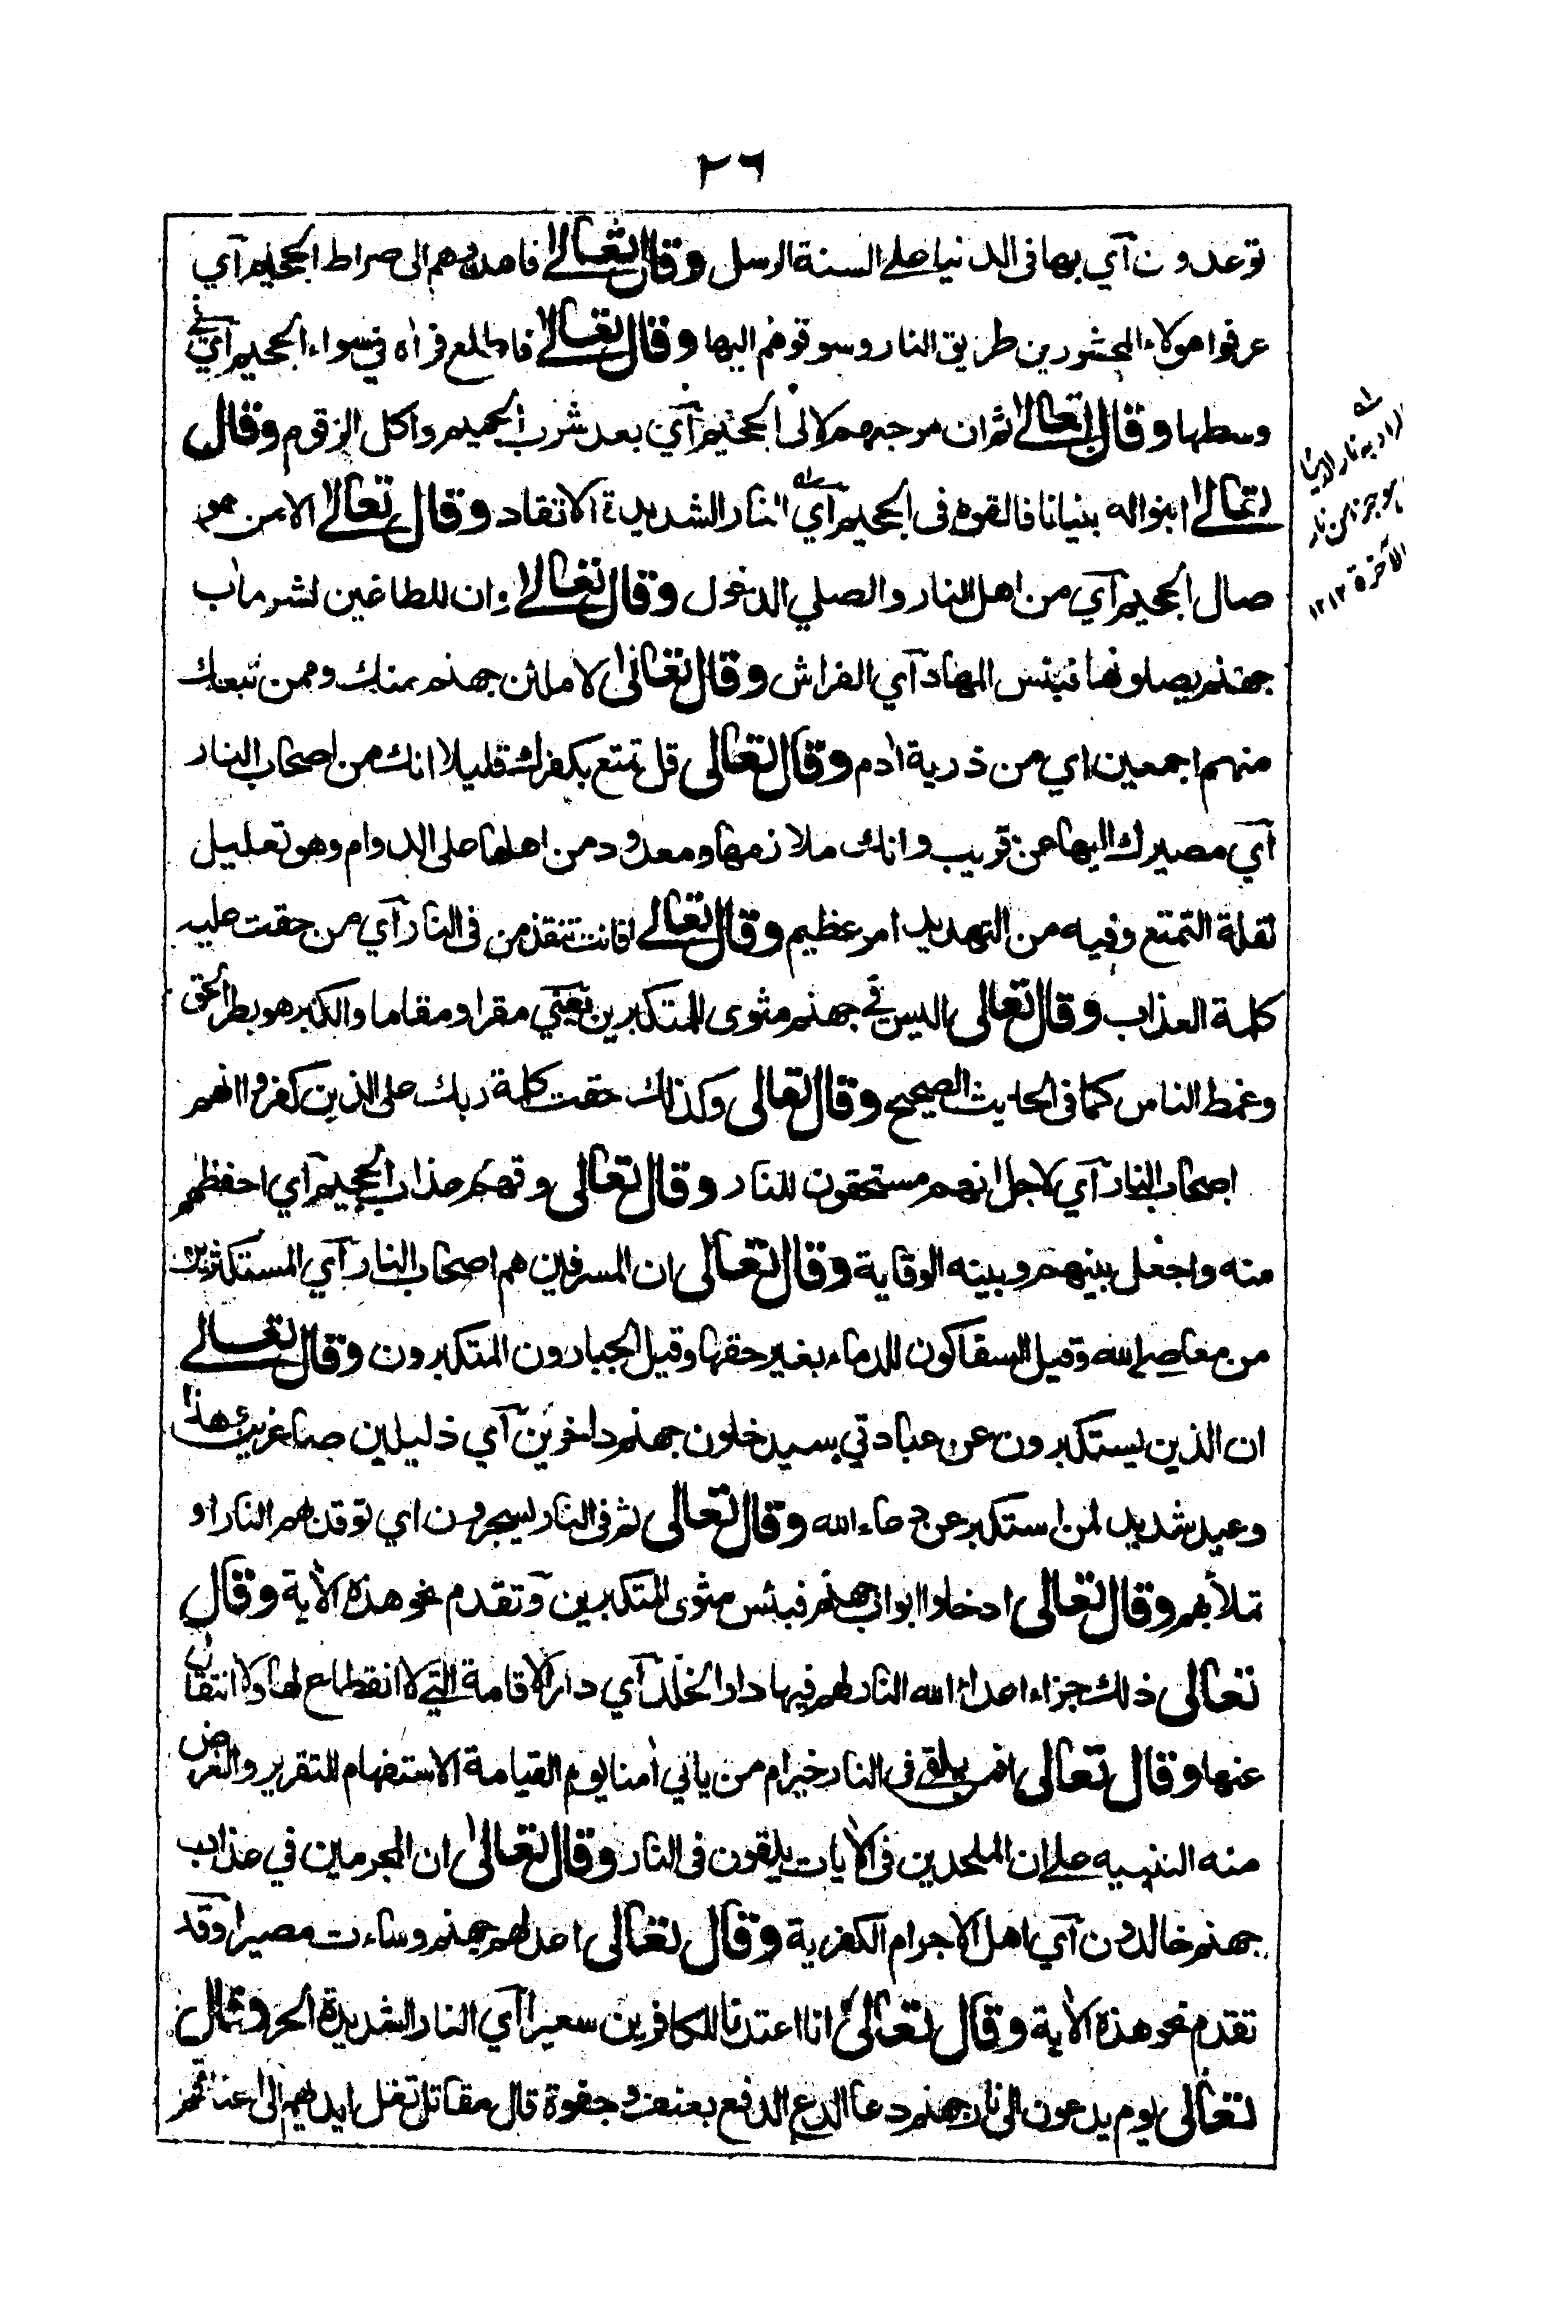 ٢٦
توعدون آي بها في الدنيا على السنة الرسل وقال تعالى فاهدوهم الى صراط الجحيم آي
عرفوا هولاء المحشورين طريق النار وسوقوهم اليها وقال تعالى فاطلع فرآه في سواء الجحيم آي في
وسطها وقال تعالى ثم ان مرجعهم لالى الجحيم آي بعد شرب الحميم واكل الزقوم وقال
تعالى ابنوا له بنيانا فالقوه في الجحيم آي النار الشديدة الاتقاد وقال تعالى الا من هو
صال الجحيم آي من اهل النار والصلي الدخول وقال تعالى وان للطاغين لشر مآب
جهنم يصلونها فبئس المهاد آي الفراش وقال تعالى لاملئن جهنم منك وممن تبعك
منهم اجمعين اي من ذرية ادم وقال تعالى قل تمتع بكفرك قليلا انك من اصحاب النار
آي مصيرك اليها عن قريب وانك ملازمها ومعدود من اهلها على الدوام وهو تعليل
لقلة التمتع وفيه من التهديد امر عظيم وقال تعالى افانت تنقذ من في النار آي من حقت عليه
كلمة العذاب وقال تعالى اليس في جهنم مثوى للمتكبرين يعني مقرا ومقاما والكبر هو بطر الحق
وغمط الناس كما في الحديث الصحيح وقال تعالى وكذلك حقت كلمة ربك على الذين كفروا انهم
اصحاب النار آي لاجل انهم مستحقون للنار وقال تعالى وقهم عذاب الجحيم آي احفظهم
منه واجعل بينهم وبينه الوقاية وقال تعالى ان المسرفين هم اصحاب النار آي المستكثرين
من معاصي الله وقيل السفاكون للدماء بغير حقها وقيل الجبارون المتكبرون وقال تعالى
ان الذين يستكبرون عن عبادتي سيدخلون جهنم داخرين آي ذليلين صاغرين هذا
وعيد شديد لمن استكبر عن دعاء الله وقال تعالى ثم في النار يسجرون اي توقد بهم النار او
تملأ بهم وقال تعالى ادخلوا ابواب جهنم فبئس مثوى المتكبرين وتقدم نحو هذه الآية وقال
تعالى ذلك جزاء اعداء الله النار لهم فيها دار الخلد آي دار الاقامة التي لا انقطاع لها ولا انتقال
عنها وقال تعالى افمن يلقى في النار خير ام من ياتي آمنا يوم القيامة الاستفهام للتقرير والغرض
منه التنبيه على ان الملحدين في الآيات يلقون في النار وقال تعالى ان المجرمين في عذاب
جهنم خالدون آي اهل الاجرام الكفرية وقال تعالى اعد لهم جهنم وساءت مصيرا وقد
تقدم نحو هذه الآية وقال تعالى انا اعتدنا للكافرين سعيرا آي النار الشديدة الحر وقال
تعالى يوم يدعون الى نار جهنم دعا الدع الدفع بعنف وجفوة قال مقاتل تغل ايديهم الى اعناقهم
نار الدنيا
من نار
الآخرة ١٢١٢